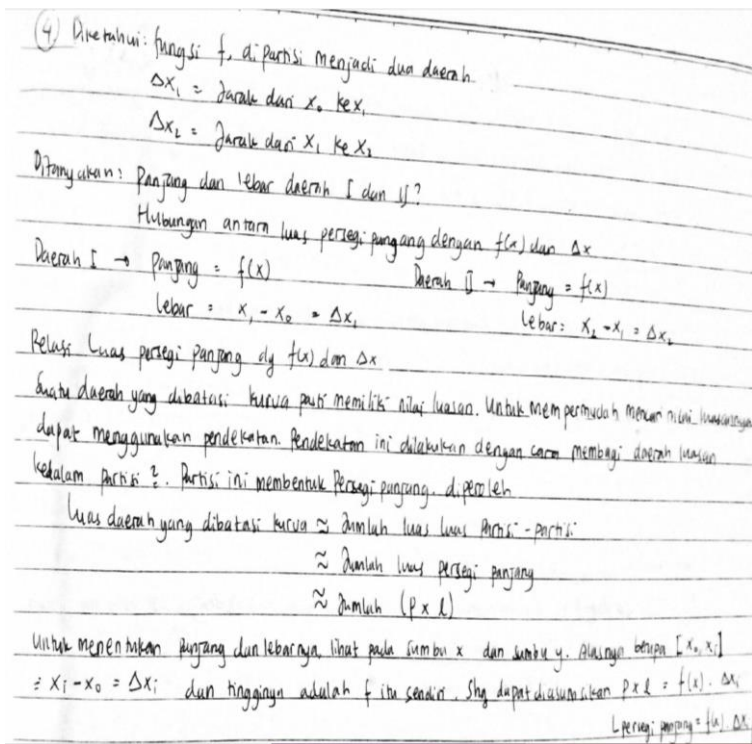 ④ Diketahui: fungsi f, dipartisi menjadi dua daerah
Δx₁ = Jarak dari x₀ ke x₁
Δx₂ = Jarak dari x₁ ke x₂
Ditanyakan: Panjang dan lebar daerah I dan II?
Hubungan antara luas persegi pangang dengan f(x) dan Δx
Daerah I → Panjang = f(x) Daerah II → Panjang = f(x)
Lebar = x₁ - x₀ = Δx₁ Lebar = x₂ - x₁ = Δx₂
Relasi Luas persegi panjang dg f(x) dan Δx
Suatu daerah yang dibatasi kurva pasti memiliki nilai luasan. Untuk mempermudah mencari nilai luasannya
dapat menggunakan pendekatan. Pendekatan ini dilakukan dengan cara membagi daerah luasan
kedalam partisi ². Partisi ini membentuk Persegi panjang. diperoleh
Luas daerah yang dibatasi kurva ≈ Jumlah luas luas partisi-partisi
≈ Jumlah luas persegi panjang
≈ Jumlah (p x l)
Untuk menentukan panjang dan lebarnya, lihat pada sumbu x dan sumbu y. Alasnya berupa [x₀, xᵢ]
= xᵢ - x₀ = Δxᵢ dan tingginya adalah f itu sendiri. Shg dapat diasumsikan p x l = f(x) . Δxᵢ
L persegi panjang = f(x) . Δx